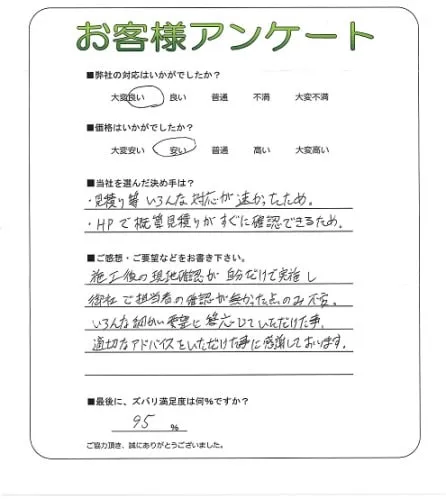 お客様アンケート
■弊社の対応はいかがでしたか？
大変良い 良い 普通 不満 大変不満
■価格はいかがでしたか？
大変安い 安い 普通 高い 大変高い
■当社を選んだ決め手は？
・見積り等 いろんな対応が速かったため。
・HPで概算見積りがすぐに確認できるため。
■ご感想・ご要望などをお書き下さい。
施工後の現地確認が自分だけで実施し
御社で担当者の確認が無かった点のみ不安。
いろんな細かい要望に答応じていただけた事。
適切なアドバイスをいただけた事に感謝しております。
■最後に、ズバリ満足度は何%ですか？
95 %
ご協力頂き、誠にありがとうございました。